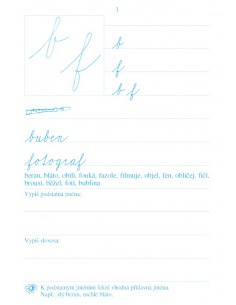 1
b
b
f
f
b f
buben
fotograf
beran, bláto, obětí, fouká, fazole, filmuje, objel, fén, obličej, fičí,
brousí, běžel, fotí, bublina
Vypiš podstatná jména:
Vypiš slovesa:
K podstatným jménům řekni vhodná přídavná jména.
Např.: zlý beran, uschlé bláto.